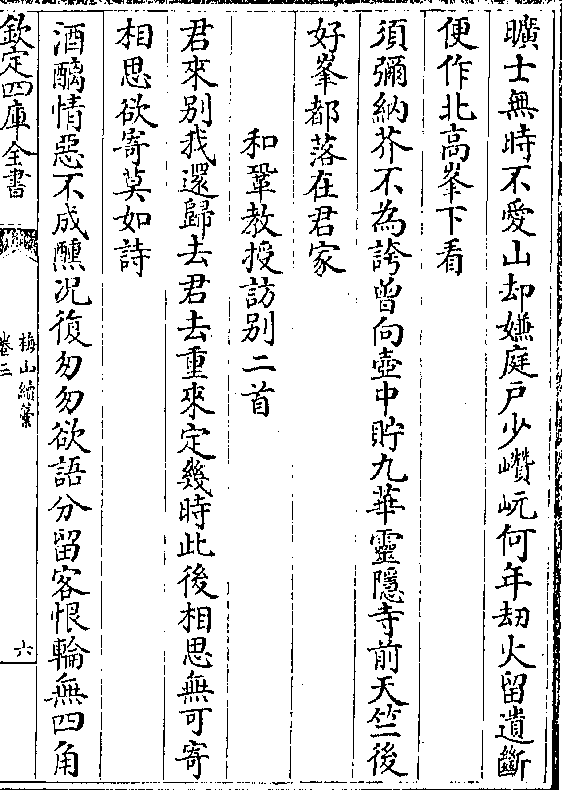 曠士無時不愛山却嫌庭戶少巑岏何年刧火留遺斷
便作北高峯下看
須彌納芥不為誇曾向壺中貯九華靈隱寺前天竺後
好峯都落在君家
和鞏教授訪别二首
君來别我還歸去君去重來定幾時此後相思無可寄
相思欲寄莫如詩
酒醨情惡不成醺况復匆匆欲語分留客恨輪無四角
欽定四庫全書
梅山續藁
卷三
六